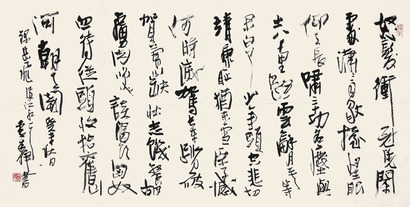 怒髮衝冠憑闌
處瀟瀟雨歇抬望眼
仰天長嘯三十功名塵與
土八千里路雲和月莫等
閒白了少年頭空悲切
靖康恥猶未雪臣子憾
何時滅駕長車踏破
賀蘭山缺壯志飢餐胡
虜肉笑談渴飲匈奴
血待從頭收拾舊山
河朝天闕